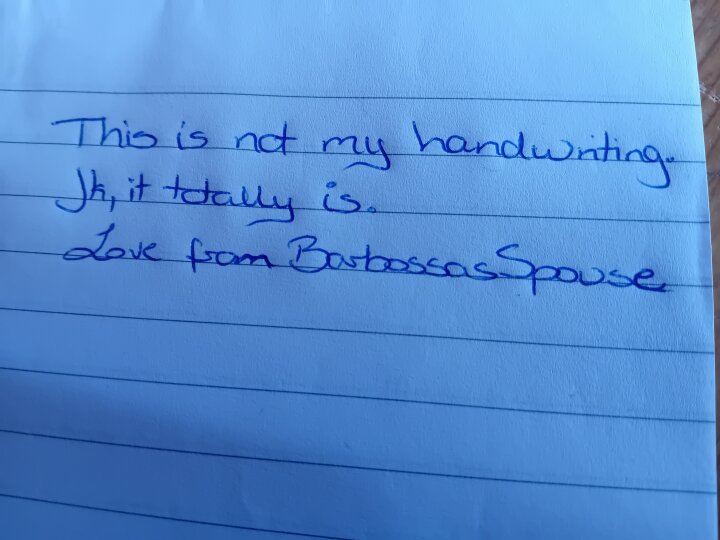 This is not my handwriting.
Jk, it totally is.
Love from BarbossasSpouse